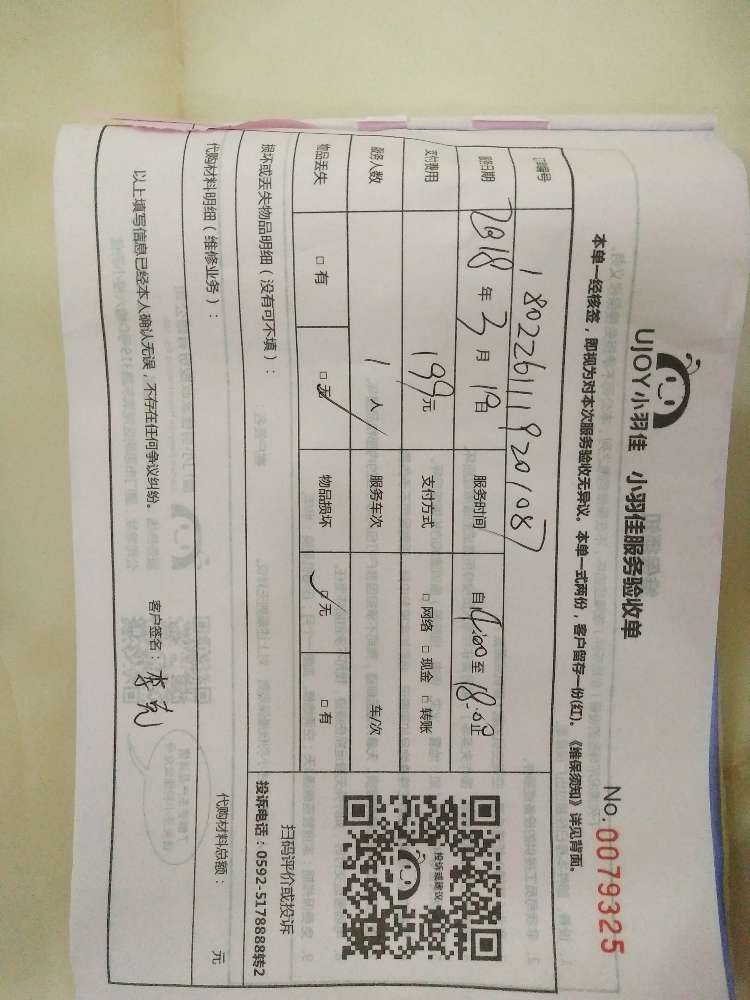 UJOY小羽佳 小羽佳服务验收单
No. 0079325
本单一经核签，即视为对本次服务验收无异议。本单一式两份，客户留存一份(红)。《维保须知》详见背面。
订单编号 180226111920108
服务日期 2018 年 3 月 1 日 服务时间 自 14:00 至 18:00 止
支付费用 199 元 支付方式 □ 网络 □ 现金 □ 转账
服务人数 1 人 服务车次 车/次
物品丢失 □ 有 □ 无 物品损坏 □ 无 □ 有
投诉或建议
扫码评价或投诉
投诉电话：0592-5178888转2
损坏或丢失物品明细（没有可不填）：
代购材料明细（维修业务）：
代购材料总额： 元
以上填写信息已经本人确认无误，不存在任何争议纠纷。
客户签名：李